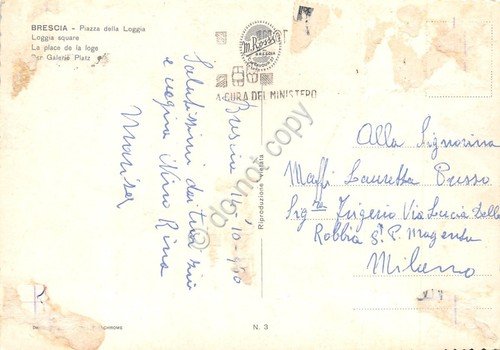 BRESCIA - Piazza della Loggia
Loggia square
La place de la loge
Der Galerie Platz
M. Rossi
BRESCIA
A CURA DEL MINISTERO
Brescia 10 960
Salutissimi dai tuoi zii
e cugina Nino Rina
Marisa
Riproduzione vietata
Alla Signorina
Maffi Lauretta Presso
Sig.ra Frigerio Via Lucia Della
Robbia S. P. Magenta
Milano
N. 3
@ do not copy